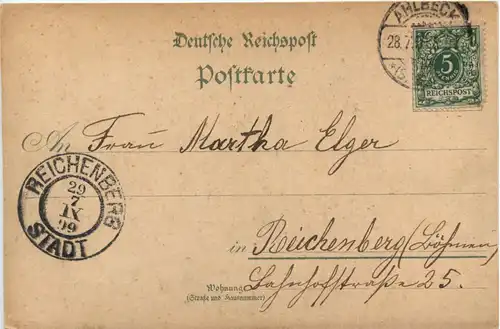 Deutsche Reichspost
Postkarte
AHLBECK
28.7.
5
REICHSPOST
An Frau Martha Elger
REICHENBERG
29
7
IX
99
STADT
in Reichenberg (Böhmen)
Wohnung Bahnhofstraße 25.
(Straße und Hausnummer)